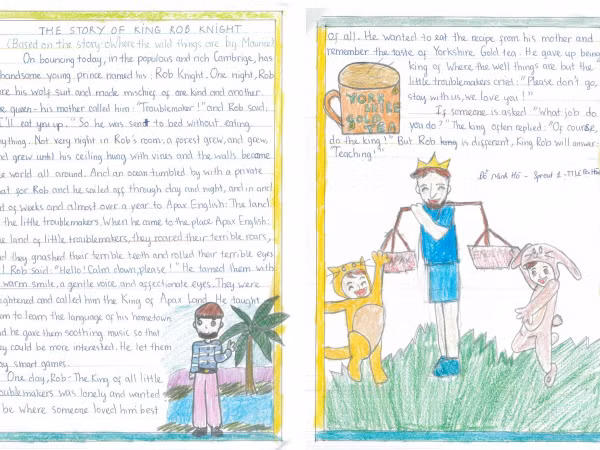 THE STORY OF KING ROB KNIGHT
(Based on the story: Where the wild things are by Maurice
On bouncing today, in the populous and rich Cambrige, has
handsome young prince named his: Rob Knight. One night, Rob
his wolf suit and made mischief of one kind and another
queen - his mother called him: "Troublemaker!" and Rob said,
I'll eat you up." So he was sent to bed without eating
anything. Not very night in Rob's room, a forest grew, and grew,
and grew until his ceiling hung with vines and the walls became
the world all around. And an ocean tumbled by with a private
boat for Rob and he sailed off through day and night, and in and
out of weeks and almost over a year to Apax English: The land
the little troublemakers. When he came to the place Apax English:
the land of little troublemakers, they roared their terrible roars,
and they gnashed their terrible teeth and rolled their terrible eyes
Rob said: "Hello! Calm down, please!" He tamed them with
warm smile, a gentle voice and affectionate eyes. They were
frightened and called him the King of Apax Land. He taught
them to learn the language of his hometown
and he gave them soothing music so that
they could be more interested. He let them
play smart games.
One day, Rob - The King of all little
troublemakers was lonely and wanted
be where someone loved him best
of all. He wanted to eat the recipe from his mother and
remember the taste of Yorkshire Gold tea. He gave up being
king of Where the well things are but the
little troublemakers cried: "Please don't go,
stay with us, we love you!"
YORK
SHIRE
GOLD
TEA
If someone is asked "What job do
you do?" The king often replied: "Of course,
do the king!" But Rob king is different, King Rob will answer:
"Teaching!"